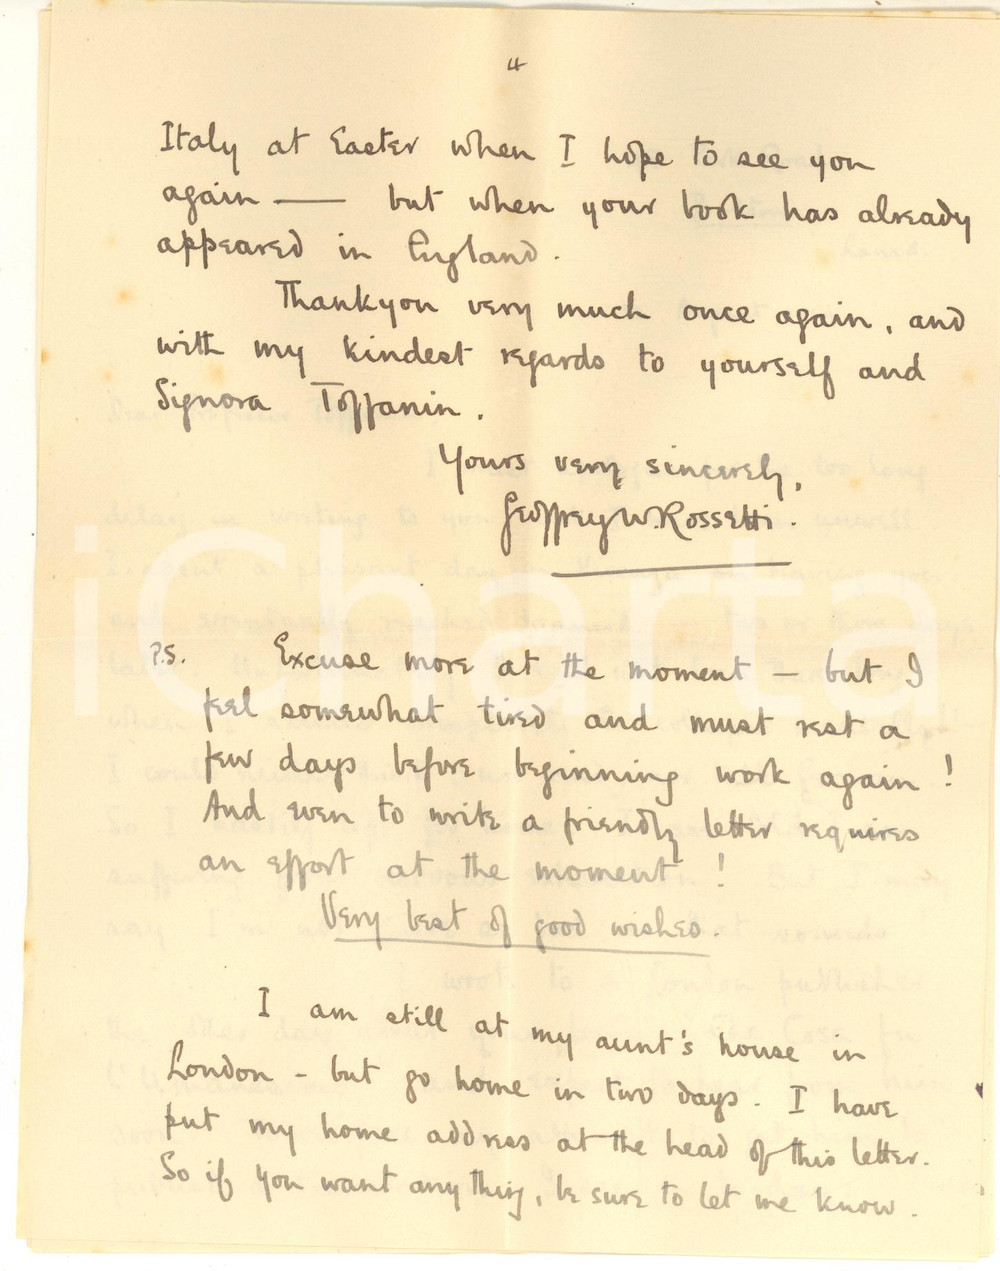 4
Italy at Easter when I hope to see you
again — but when your book has already
appeared in England.
Thankyou very much once again, and
with my kindest regards to yourself and
Signora Toffanin.
Yours very sincerely,
Geoffrey W. Rossetti.
P.S. Excuse more at the moment – but I
feel somewhat tired and must rest a
few days before beginning work again!
And even to write a friendly letter requires
an effort at the moment!
Very best of good wishes.
I am still at my aunt's house in
London – but go home in two days. I have
put my home address at the head of this letter.
So if you want any thing, be sure to let me know.
iCharta